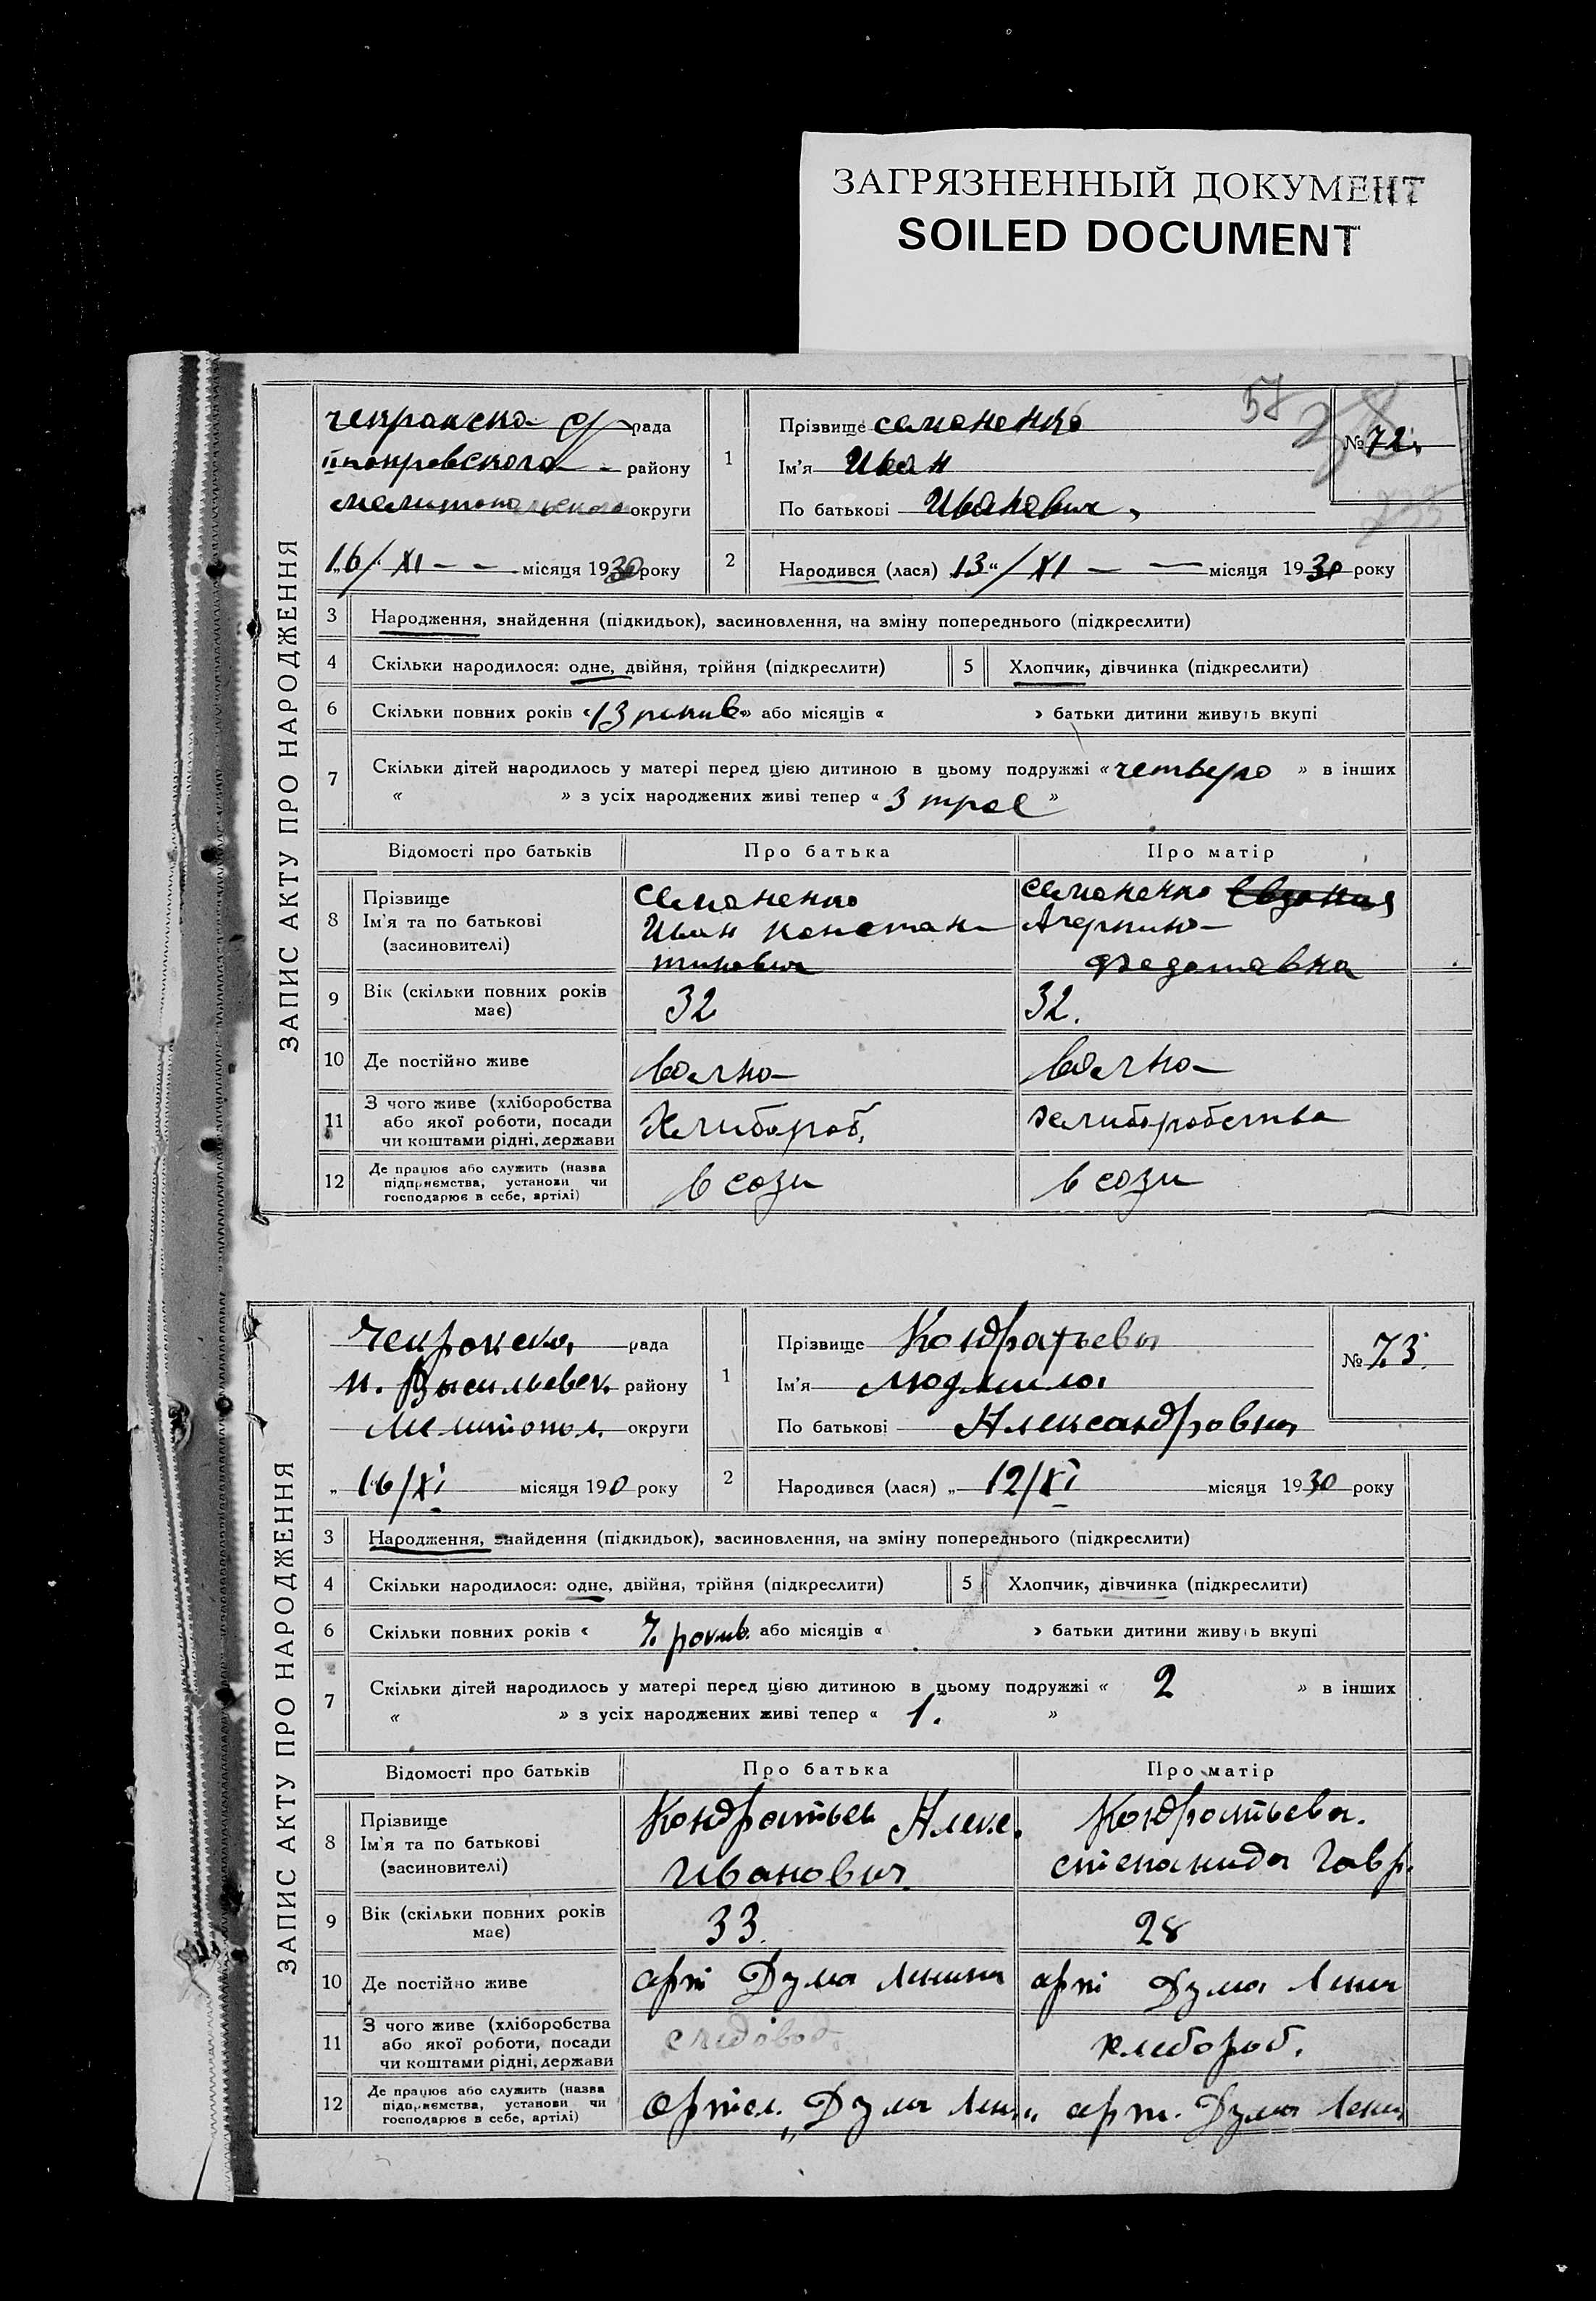 ЗАГРЯЗНЕННЫЙ ДОКУМЕНТ
SOILED DOCUMENT
ЗАПИС АКТУ ПРО НАРОДЖЕННЯ
рада
району
округи
16/XI - - місяця 1930 року
57
1
Прізвище Семоненко
Ім'я Иван
По батькові Иванович
№ 72.
2
Народився (лася) 13"/XI — — місяця 1930 року
3 Народження, знайдення (підкидьок), засиновлення, на зміну попереднього (підкреслити)
4 Скільки народилося: одне, двійня, трійня (підкреслити) 5 Хлопчик, дівчинка (підкреслити)
6 Скільки повних років «13 рокив» або місяців « » батьки дитини живуть вкупі
7 Скільки дітей народилось у матері перед цією дитиною в цьому подружжі «четверо» в інших
« » з усіх народжених живі тепер «3 трое»
Відомості про батьків Про батька Про матір
8 Прізвище
Ім'я та по батькові
(засиновителі)
Семоненко
Иван Констан
тинович
Семоненко
Федотавна
9 Вік (скільки повних років має) 32 32.
10 Де постійно живе
11 З чого живе (хліборобства
або якої роботи, посади
чи коштами рідні, держави
Хлибороб. хлиборобства
12 Де працює або служить (назва
підприємства, установи чи
господарює в себе, артілі)
в сози в сози
ЗАПИС АКТУ ПРО НАРОДЖЕННЯ
Чекракска рада
н. Васильевск. району
Мелитопол. округи
„ 16/XI місяця 190 року
1
Прізвище Кондратьева
Ім'я Людмила
По батькові Александровна
№ 73.
2
Народився (лася) „ 12/XI місяця 1930 року
3 Народження, знайдення (підкидьок), засиновлення, на зміну попереднього (підкреслити)
4 Скільки народилося: одне, двійня, трійня (підкреслити) 5 Хлопчик, дівчинка (підкреслити)
6 Скільки повних років « 7. рокив. або місяців « » батьки дитини живуть вкупі
7 Скільки дітей народилось у матері перед цією дитиною в цьому подружжі « 2 » в інших
« » з усіх народжених живі тепер « 1. »
Відомості про батьків Про батька Про матір
8 Прізвище
Ім'я та по батькові
(засиновителі)
Кондратьев Алекс.
Иванович
Кондратьева.
Степанида Гавр.
9 Вік (скільки повних років має) 33. 28
10 Де постійно живе арт Дума Ленина арт Дума Ленин
11 З чого живе (хліборобства
або якої роботи, посади
чи коштами рідні, держави
хлебороб.
12 Де працює або служить (назва
підприємства, установи чи
господарює в себе, артілі)
Артел. „Дума Лени" арт. Дума Ленин